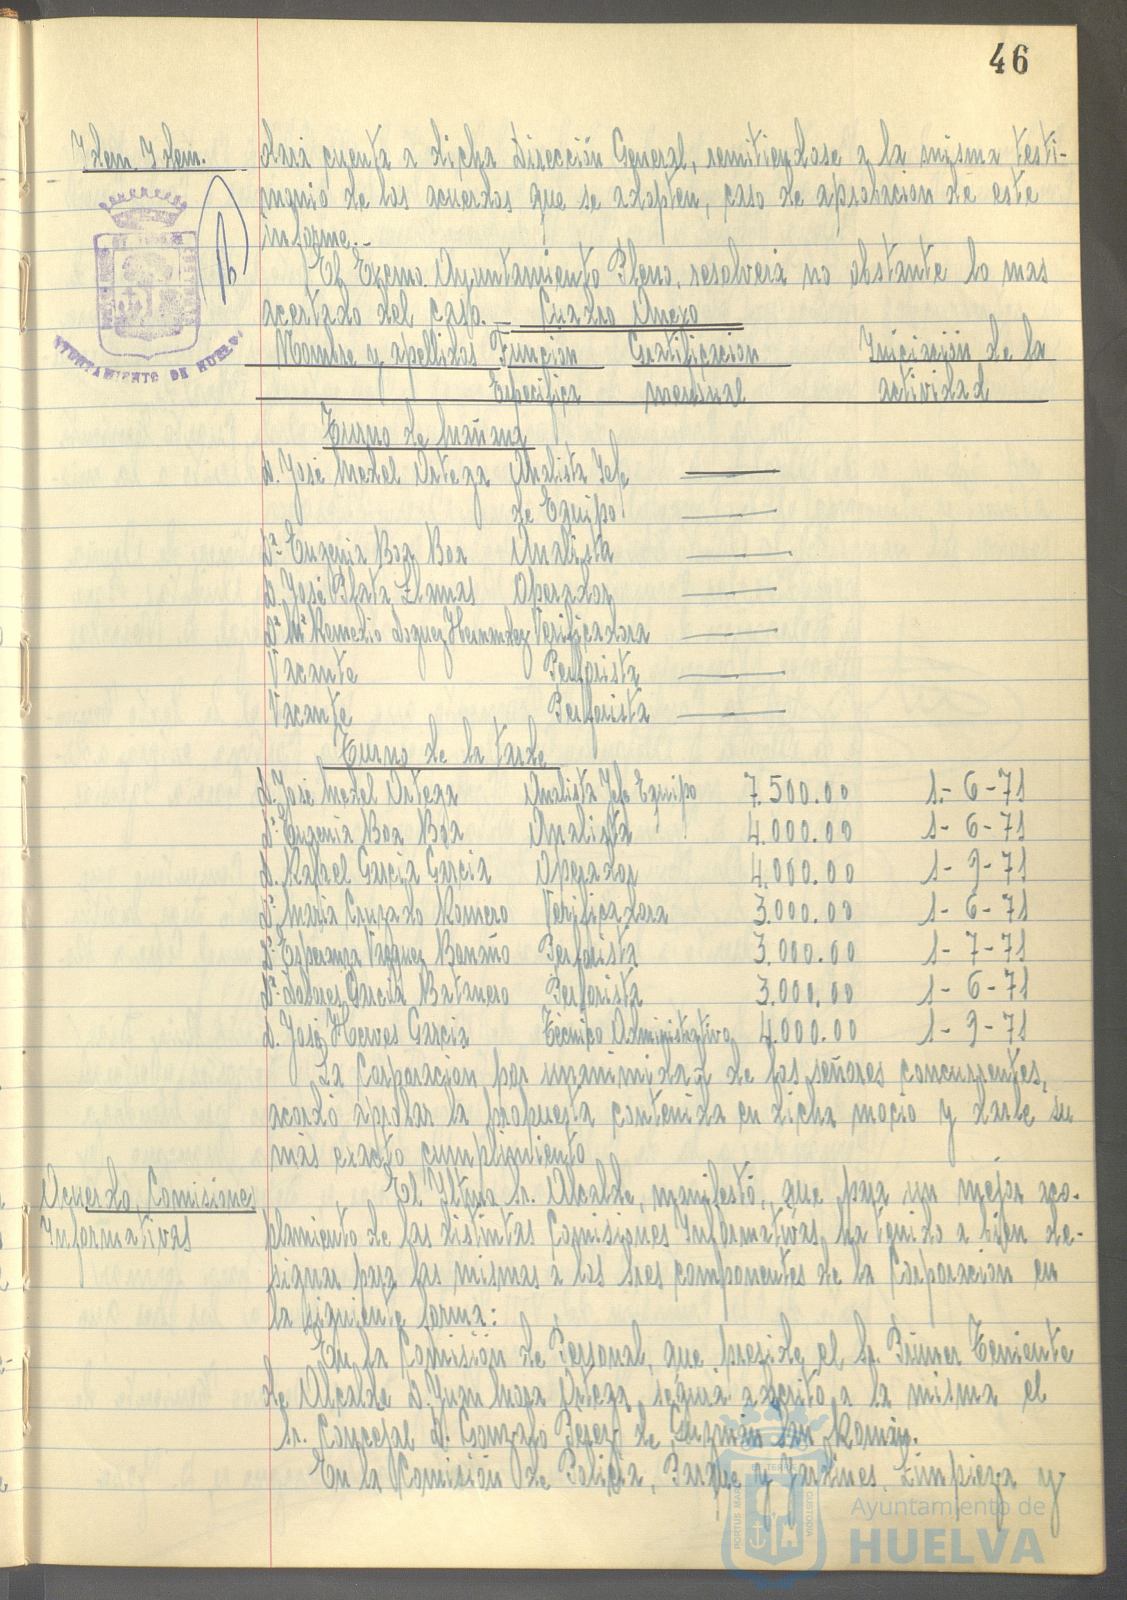 46
Idem Idem.
dará cuenta a dicha Dirección General, remitiendose a la misma testi-
monio de los acuerdos que se adopten, caso de aprobacion de este
informe.-
El Excmo. Ayuntamiento Pleno, resolverá no obstante lo mas
acertado del caso. - Cuadro Anexo
Nombre y apellidos Función Gratificacion Iniciación de la
Especifica mensual actividad
Turno de mañana
D. José Medel Ortega Analista Jefe
de Equipo
Dª Eugenia Boa Boa Analista
D. José Plata Llamas Operador
Dª Mª Remedio Hernandez Verificadora
Vacante Perforista
Vacante Perforista
Turno de la tarde
D. José Medel Ortega Analista Jefe Equipo 7.500.00 1.- 6 - 71
Dª Eugenia Boa Boa Analista 4.000.00 1 - 6 - 71
D. Rafael Garcia Garcia Operador 4.000.00 1 - 9 - 71
Dª Maria Cruzado Romero Verificadora 3.000.00 1 - 6 - 71
Dª Esperanza Vazquez Perforista 3.000.00 1 - 7 - 71
Dª Dolores Garcia Batanero Perforista 3.000.00 1 - 6 - 71
D. José Garcia Técnico Administrativo 4.000.00 1 - 9 - 71
La Corporacion por unanimidad de los señores concurrentes,
acordó aprobar la propuesta contenida en dicha mocio y darle su
más exacto cumplimiento
Acuerdo, Comisiones
Informativas
El Iltmo Sr. Alcalde, manifestó, que para un mejor aco-
plamiento de las distintas Comisiones Informativas, ha tenido a bien de-
signar para las mismas a los tres componentes de la Corporacion en
la siguiente forma:
En la Comisión de Personal, que preside el Sr. Primer Teniente
de Alcalde D. Juan Mora Ortega, seguirá adscrito a la misma el
Sr. Concejal D. Gonzalo Perez de Guzmán San Román.
En la Comisión de Policia, Parque y Jardines, Limpieza y
AYUNTAMIENTO DE HUELVA
PORTUS MARIS ET TERRE CUSTODIA
Ayuntamiento de
HUELVA